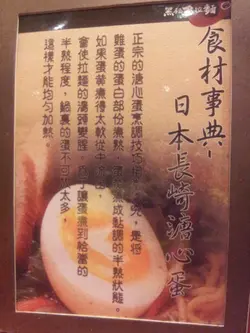 食材事典-
日本長崎溏心蛋
正宗的溏心蛋烹調技巧
是將
雞蛋的蛋白部份煮熟
成黏稠的半熟狀態。
如果蛋黃煮得太軟從中
會使拉麵的湯頭變腥
讓蛋煮到恰當的
半熟程度,鍋裏的蛋不可
太多,
這樣才能均勻加熱。